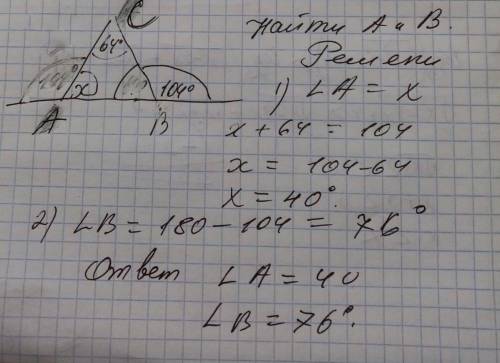 C
64°
104°
x
104°
A
B
Найти A и B.
Решени
1) ∠A = x
x + 64 = 104
x = 104-64
x = 40°.
2) ∠B = 180 - 104 = 76°
Ответ ∠A = 40
∠B = 76°.